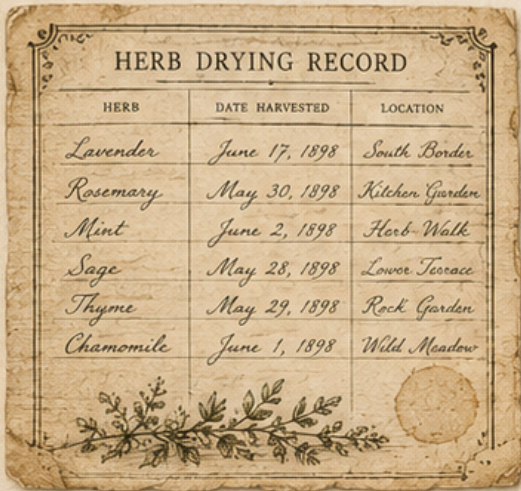 HERB DRYING RECORD
HERB DATE HARVESTED LOCATION
Lavender June 17, 1898 South Border
Rosemary May 30, 1898 Kitchen Garden
Mint June 2, 1898 Herb Walk
Sage May 28, 1898 Lower Terrace
Thyme May 29, 1898 Rock Garden
Chamomile June 1, 1898 Wild Meadow